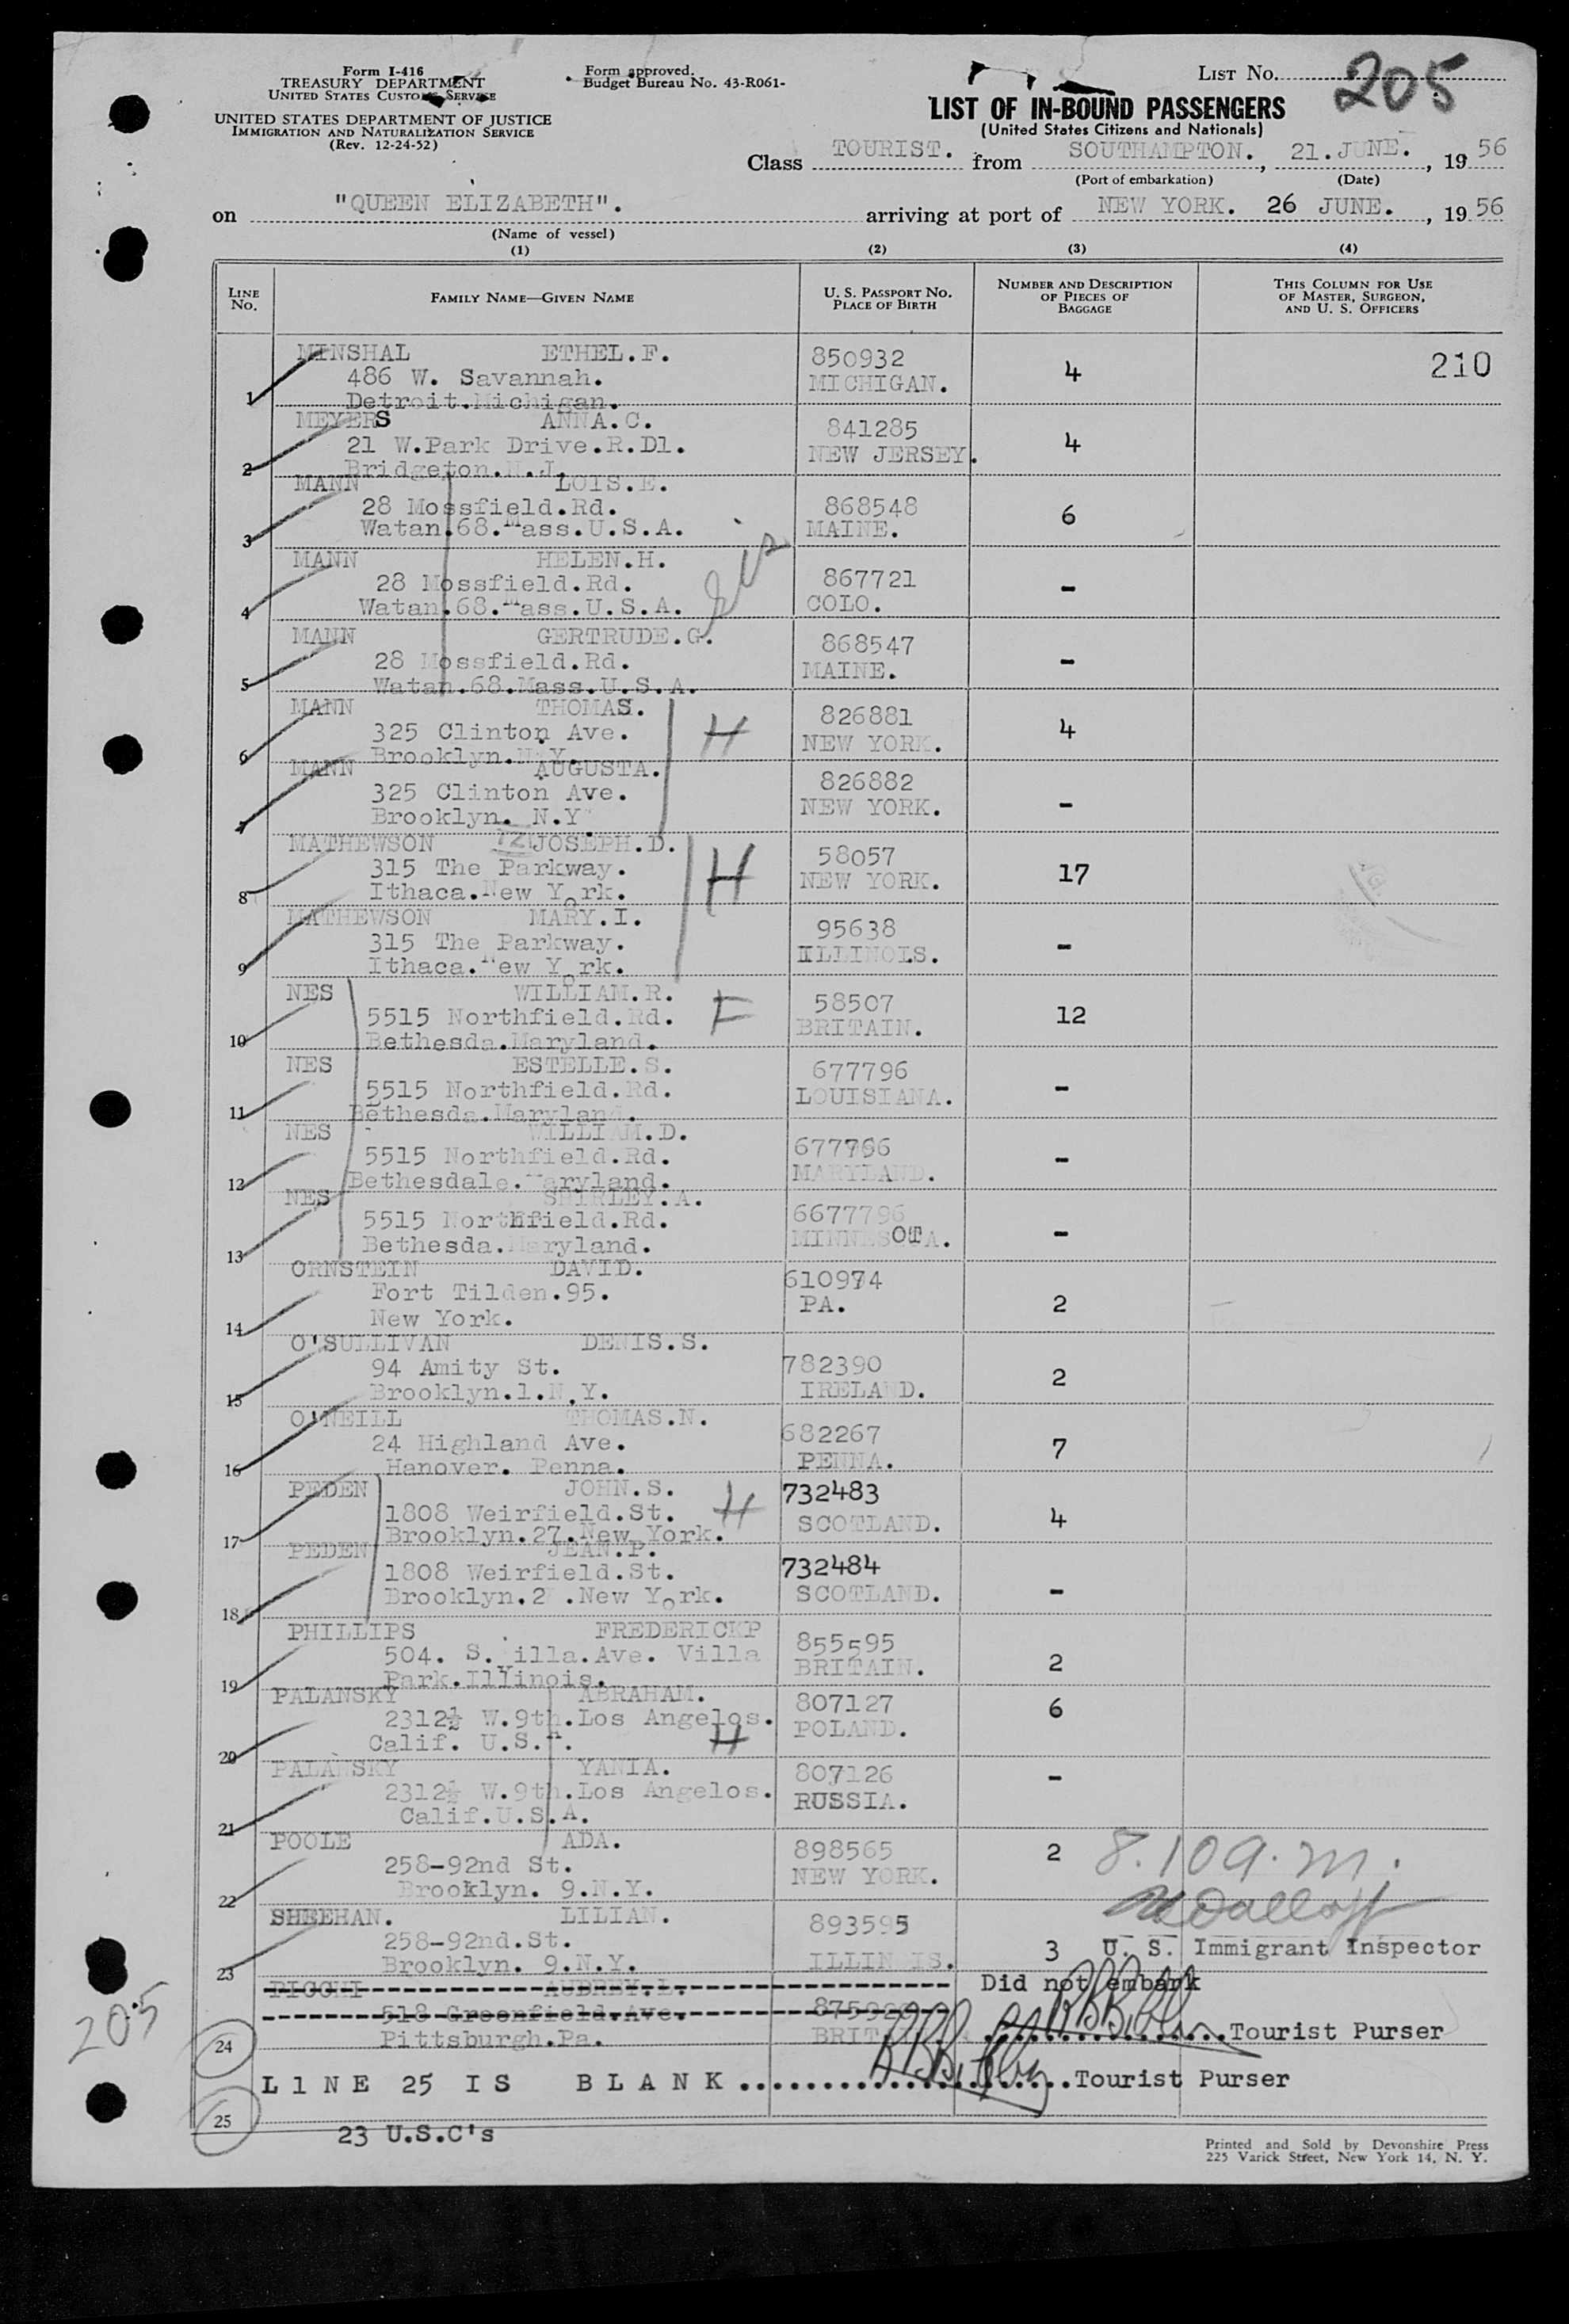 Form I-416
TREASURY DEPARTMENT
UNITED STATES CUSTOMS SERVICE
UNITED STATES DEPARTMENT OF JUSTICE
IMMIGRATION AND NATURALIZATION SERVICE
(Rev. 12-24-52)
Form approved.
Budget Bureau No. 43-R061-
LIST No. 205
LIST OF IN-BOUND PASSENGERS
(United States Citizens and Nationals)
Class TOURIST. from SOUTHAMPTON., 21.JUNE., 1956
(Port of embarkation) (Date)
on "QUEEN ELIZABETH". arriving at port of NEW YORK. 26 JUNE., 1956
(Name of vessel)
(1) (2) (3) (4)
LINE No. FAMILY NAME—GIVEN NAME U. S. PASSPORT NO. PLACE OF BIRTH NUMBER AND DESCRIPTION OF PIECES OF BAGGAGE THIS COLUMN FOR USE OF MASTER, SURGEON, AND U. S. OFFICERS
MINSHAL ETHEL.F. 850932 210
486 W. Savannah. MICHIGAN. 4
1 Detroit.Michigan.
MEYERS ANNA.C. 841285
21 W.Park Drive.R.D1. NEW JERSEY. 4
2 Bridgeton.N.J.
MANN LOIS.E.
28 Mossfield.Rd. 868548 6
3 Watan.68.Mass.U.S.A. MAINE.
MANN HELEN.H.
28 Mossfield.Rd. 867721 -
4 Watan.68.Mass.U.S.A. COLO.
MANN GERTRUDE.G. 868547
28 Mossfield.Rd. MAINE. -
5 Watan.68.Mass.U.S.A.
MANN THOMAS. 826881
325 Clinton Ave. H NEW YORK. 4
6 Brooklyn.N.Y.
MANN AUGUSTA. 826882
325 Clinton Ave. NEW YORK. -
7 Brooklyn. N.Y
MATHEWSON JOSEPH.D. 58057
315 The Parkway. H NEW YORK. 17
8 Ithaca.New York.
MATHEWSON MARY.I. 95638
315 The Parkway. ILLINOIS. -
9 Ithaca.New York.
NES WILLIAM.R. 58507
5515 Northfield.Rd. F BRITAIN. 12
10 Bethesda.Maryland.
NES ESTELLE.S. 677796
5515 Northfield.Rd. LOUISIANA. -
11 Bethesda.Maryland.
NES WILLIAM.D. 677796
5515 Northfield.Rd. MARYLAND. -
12 Bethesdale.Maryland.
NES SHIRLEY.A. 6677796
5515 Northfield.Rd. MINNESOTA. -
13 Bethesda.Maryland.
ORNSTEIN DAVID. 610974
Fort Tilden.95. PA. 2
14 New York.
O'SULLIVAN DENIS.S. 782390
94 Amity St. IRELAND. 2
15 Brooklyn.1.N.Y.
O'NEILL THOMAS.N. 682267
24 Highland Ave. PENNA. 7
16 Hanover. Penna.
PEDEN JOHN.S. 732483
1808 Weirfield.St. H SCOTLAND. 4
17 Brooklyn.27.New York.
PEDEN JEAN.P. 732484
1808 Weirfield.St. SCOTLAND. -
18 Brooklyn.2 .New York.
PHILLIPS FREDERICKP 855595
504. S. Villa.Ave. Villa BRITAIN. 2
19 Park.Illinois.
PALANSKY ABRAHAM. 807127 6
2312½ W.9th.Los Angelos. POLAND.
20 Calif. U.S.A. H
PALANSKY YANIA. 807126 -
2312½ W.9th.Los Angelos. RUSSIA.
21 Calif.U.S.A.
POOLE ADA. 898565 2 8.10a.m.
258-92nd St. NEW YORK.
22 Brooklyn. 9.N.Y.
SHEEHAN. LILIAN. 893595
258-92nd.St. ILLINOIS. 3 U. S. Immigrant Inspector
23 Brooklyn. 9.N.Y.
PICCHI AUBREY.L. Did not embark
518 Greenfield.Ave.
24 Pittsburgh.Pa. Tourist Purser
205
L1NE 25 IS BLANK Tourist Purser
25
23 U.S.C's
Printed and Sold by Devonshire Press
225 Varick Street, New York 14, N. Y.